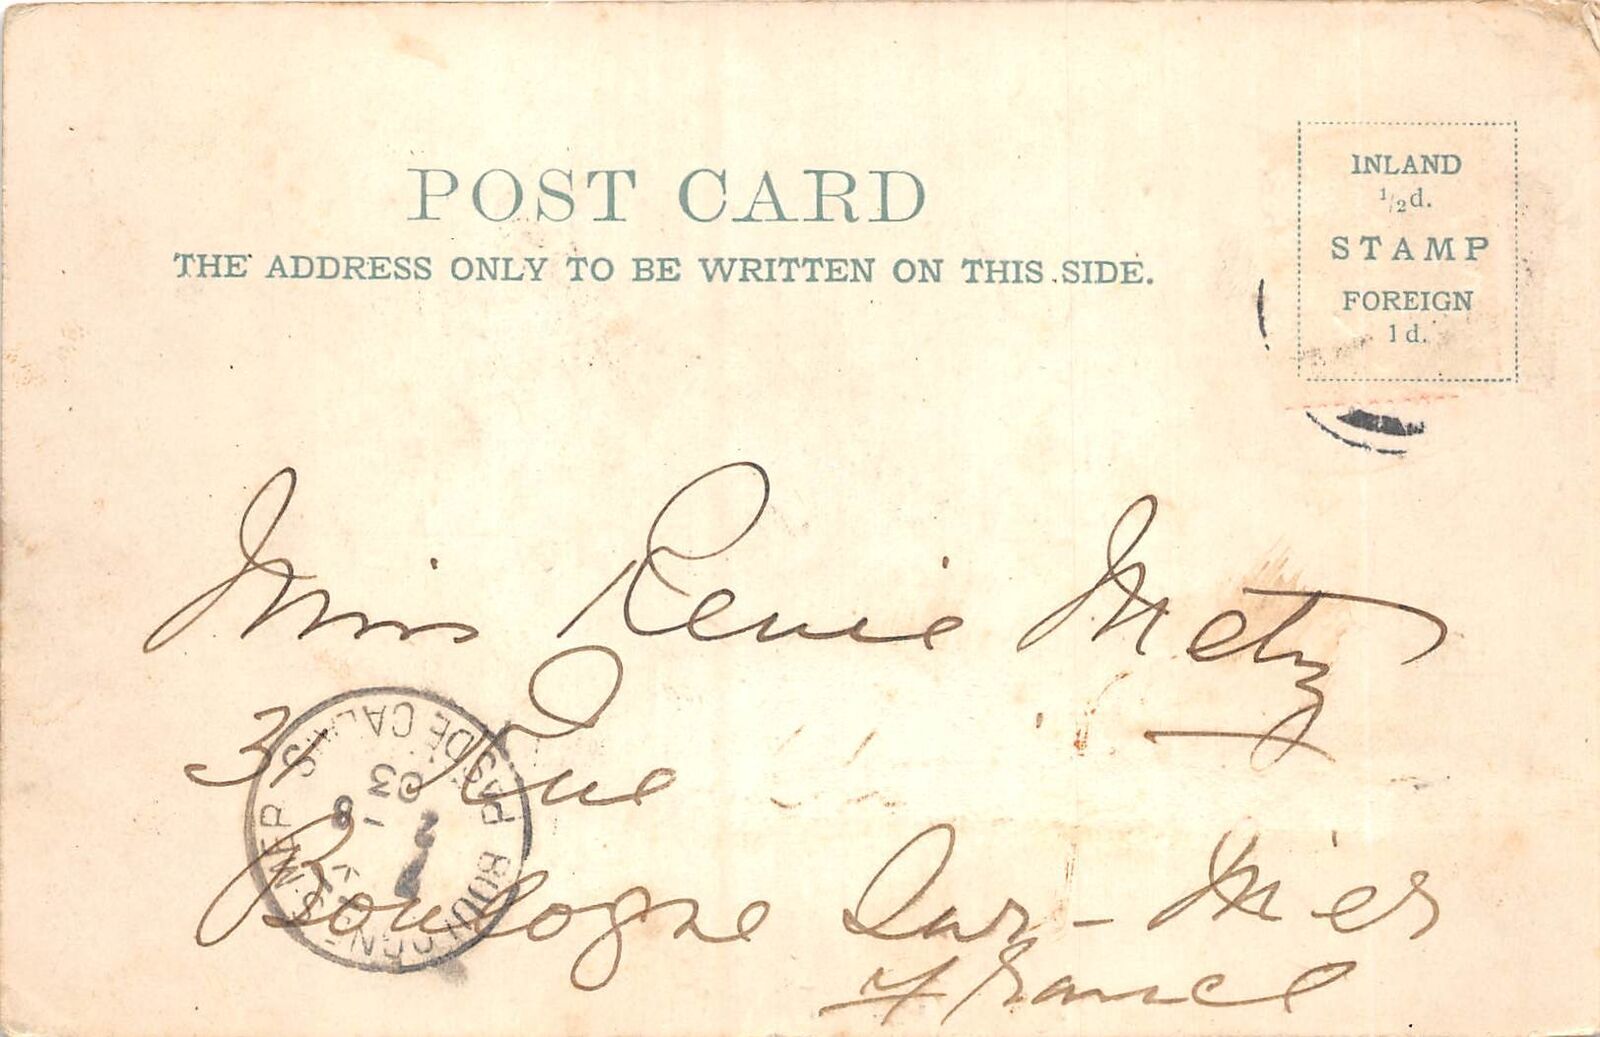 POST CARD
THE ADDRESS ONLY TO BE WRITTEN ON THIS SIDE.
INLAND
½d.
STAMP
FOREIGN
1d.
Miss Renie Metz
31 Rue
Boulogne Sur-Mer
France
BOULOGNE-S-MER PAS DE CALAIS
03